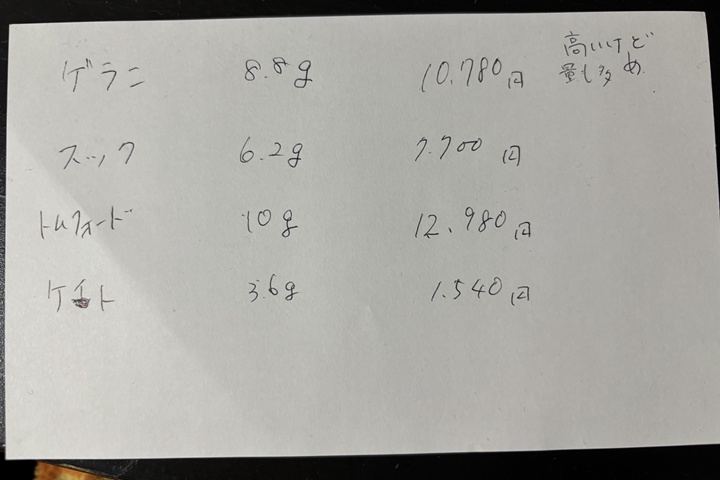 ゲラン 8.8g 10.780円 高いけど
量も多め
スック 6.2g 7.700円
トムフォード 10g 12.980円
ケイト 3.6g 1.540円